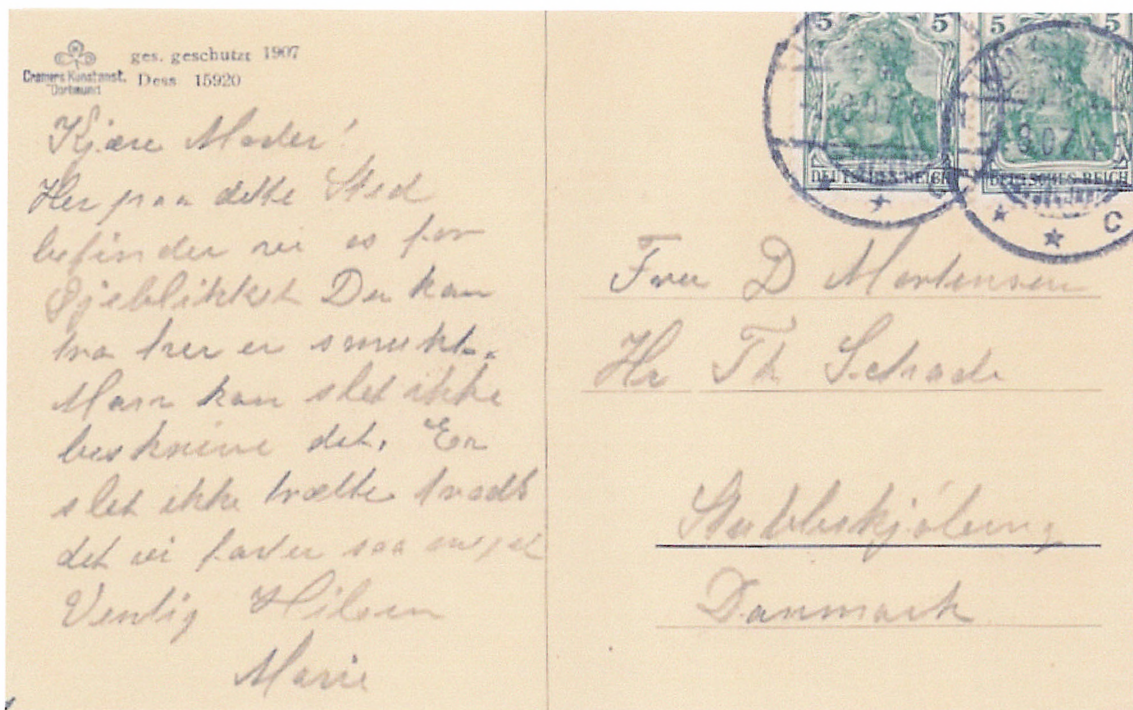 ges. geschützt 1907
Cramers Kunstanst.
Dortmund
Dess 15920
Kjære Moder!
Her paa dette Sted
befinder vi os for
Øjeblikket Du kan
tro her er smukt.
Man kan slet ikke
beskrive det. Er
slet ikke trætte trods
det vi farter saa meget
Venlig Hilsen
Marie
5 5
DEUTSCHES REICH
5 5
DEUTSCHES REICH
C
Fru D Mortensen
Hr Th Schade
Stubbekjøbing
Danmark